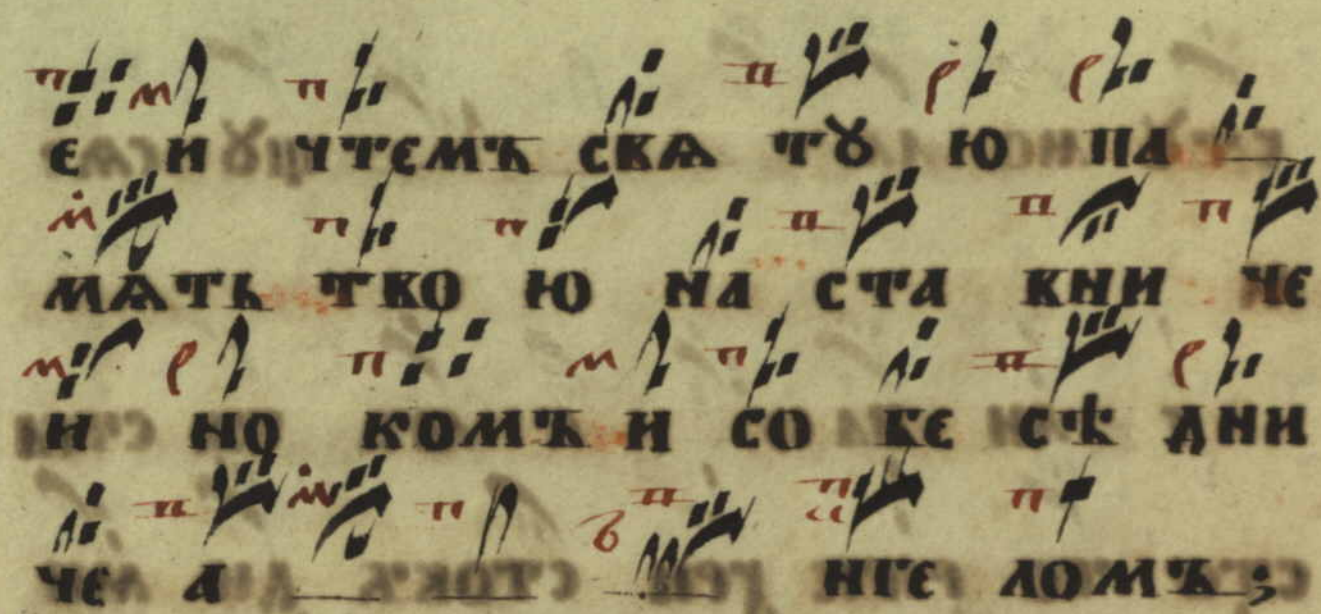 є и чтемъ свѧ тꙋ ю па
мѧть тво ю на ста вни че
и но комъ и со бе сѣ дни
че а нге ломъ ;